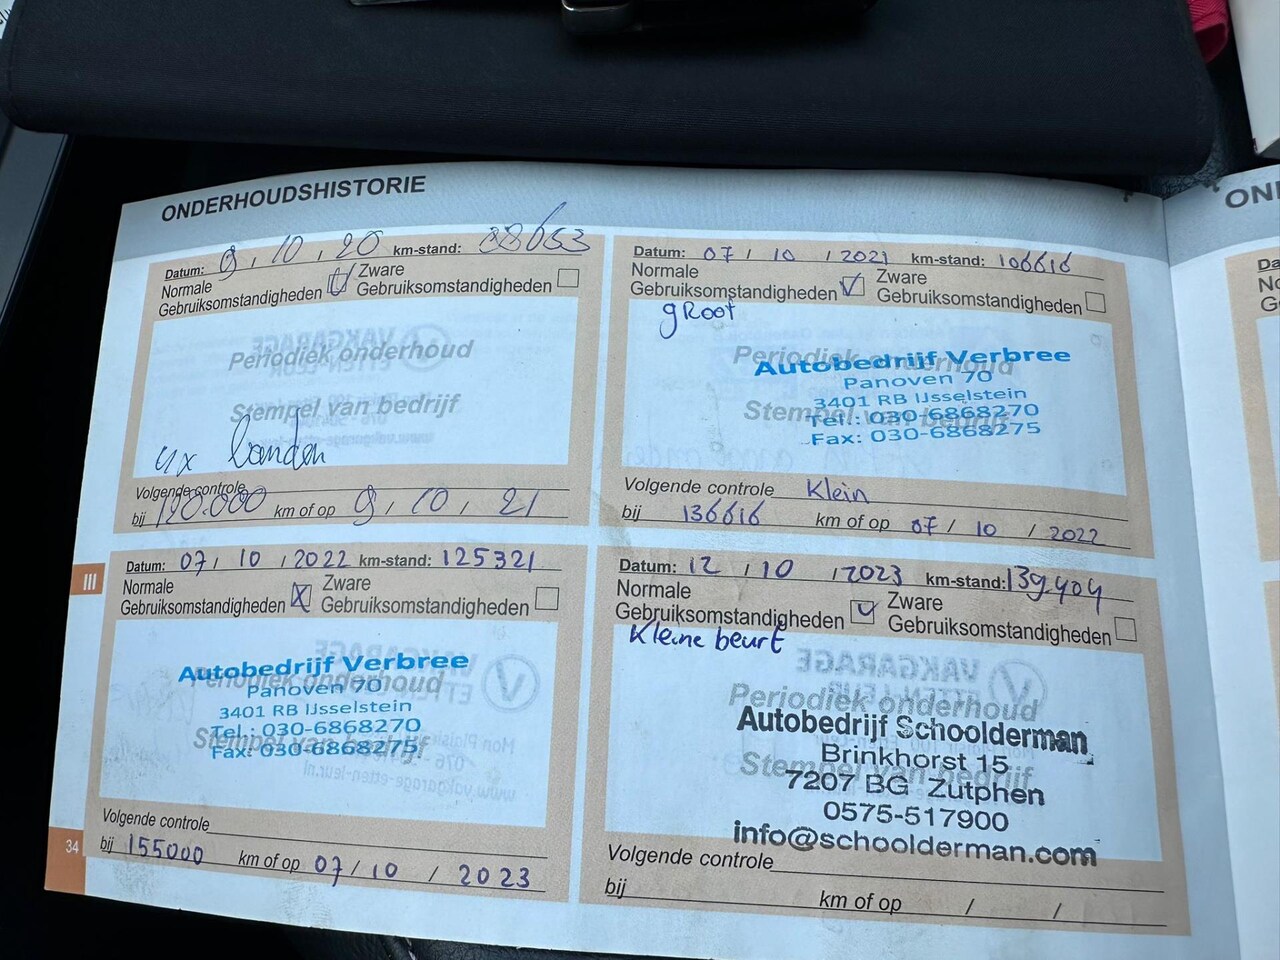 ONDERHOUDSHISTORIE
Datum: 9 / 10 / 20 km-stand: 88653
Normale Gebruiksomstandigheden Zware Gebruiksomstandigheden
Periodiek onderhoud
Stempel van bedrijf
4x banden
Volgende controle
bij 120.000 km of op 9 / 10 / 21
Datum: 07 / 10 / 2021 km-stand: 106616
Normale Gebruiksomstandigheden Zware Gebruiksomstandigheden
gRoot
Periodiek onderhoud
Autobedrijf Verbree
Panoven 70
3401 RB IJsselstein
Stempel van bedrijf
Tel.: 030-6868270
Fax: 030-6868275
Volgende controle Klein
bij 136616 km of op 07 / 10 / 2022
Datum: 07 / 10 / 2022 km-stand: 125321
Normale Gebruiksomstandigheden Zware Gebruiksomstandigheden
Autobedrijf Verbree
Periodiek onderhoud
Panoven 70
3401 RB IJsselstein
Tel.: 030-6868270
Stempel van bedrijf
Fax: 030-6868275
Volgende controle
bij 155000 km of op 07 / 10 / 2023
Datum: 12 / 10 / 2023 km-stand: 139404
Normale Gebruiksomstandigheden Zware Gebruiksomstandigheden
Kleine beurt
Periodiek onderhoud
Autobedrijf Schoolderman
Brinkhorst 15
Stempel van bedrijf
7207 BG Zutphen
0575-517900
info@schoolderman.com
Volgende controle
bij km of op / /
III
34